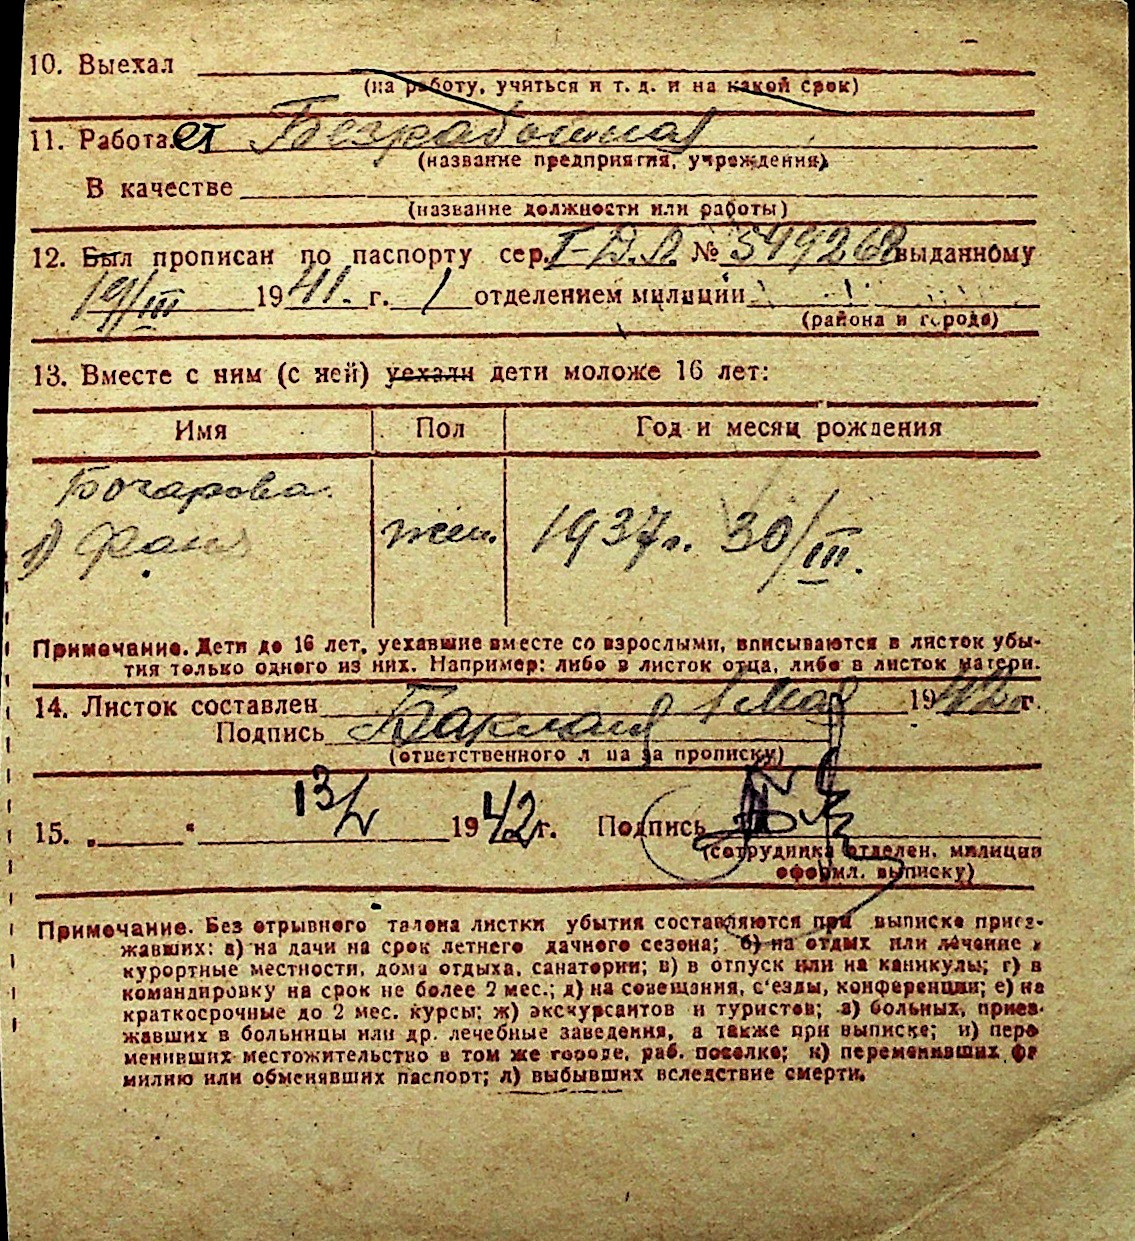 10. Выехал
(на работу, учиться и т. д. и на какой срок)
11. Работает Безработная
(название предприятия, учреждения)
В качестве
(название должности или работы)
12. Был прописан по паспорту сер. I-Д.Л. № 549268 выданному
19/III 1941. г. 1 отделением милиции
(района и города)
13. Вместе с ним (с ней) уехали дети моложе 16 лет:
Имя Пол Год и месяц рождения
Бочарова
1) Фаня жен. 1937г. 30/III.
Примечание. Дети до 16 лет, уехавшие вместе со взрослыми, вписываются в листок убы-
тия только одного из них. Например: либо в листок отца, либо в листок матери.
14. Листок составлен 1 мая 1942 г.
Подпись
(ответственного лица за прописку)
15. „ " 13/V 1942 г. Подпись
(сотрудника отделен. милиции
оформл. выписку)
Примечание. Без отрывного талона листки убытия составляются при выписке приез-
жавших: а) на дачи на срок летнего дачного сезона; б) на отдых или лечение в
курортные местности, дома отдыха, санатории; в) в отпуск или на каникулы; г) в
командировку на срок не более 2 мес.; д) на совещания, с'езды, конференции; е) на
краткосрочные до 2 мес. курсы; ж) экскурсантов и туристов; з) больных, приез-
жавших в больницы или др. лечебные заведения, а также при выписке; и) пере
менивших местожительство в том же городе, раб. поселке; к) переменивших фа
милию или обменявших паспорт; л) выбывших вследствие смерти.